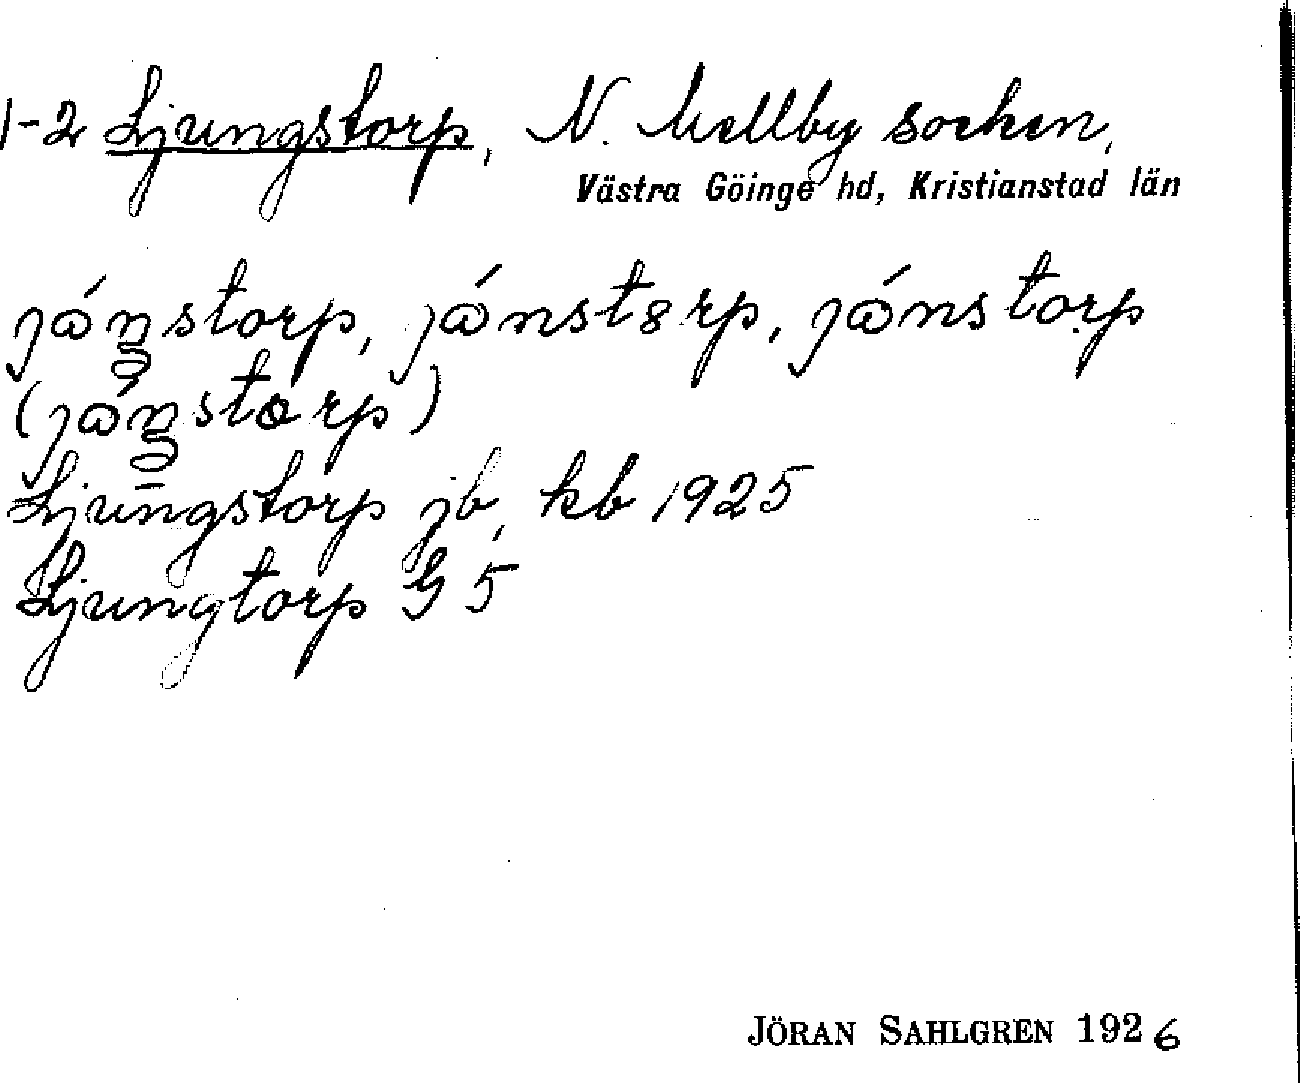 1-2 Ljungstorp, N. Mellby socken,
Västra Göinge hd, Kristianstad län
jɷ́ŋstorp, jɷ́nst8rp, jɷ́nstorp
(jɷ́ŋstɷrp)
Ljungstorp jb, kb 1925
Ljungtorp G 5
JÖRAN SAHLGREN 1926